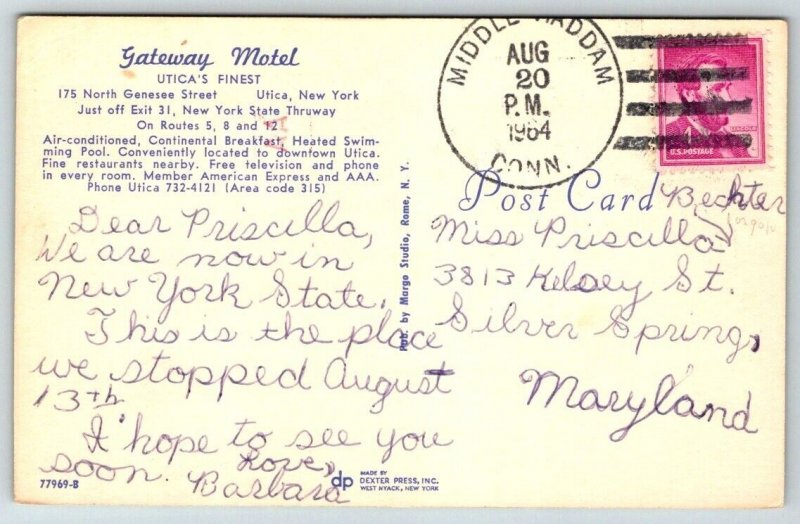 Gateway Motel
UTICA'S FINEST
175 North Genesee Street Utica, New York
Just off Exit 31, New York State Thruway
On Routes 5, 8 and 12
Air-conditioned, Continental Breakfast, Heated Swim-
ming Pool. Conveniently located to downtown Utica.
Fine restaurants nearby. Free television and phone
in every room. Member American Express and AAA.
Phone Utica 732-4121 (Area code 315)
Dear Priscilla,
We are now in
New York State.
This is the place
we stopped August
13th
I hope to see you
soon. Love,
Barbara
77969-B
Pub. by Margo Studio, Rome, N. Y.
dp
MADE BY
DEXTER PRESS, INC.
WEST NYACK, NEW YORK
MIDDLE HADDAM
AUG
20
P.M.
1964
CONN.
U.S. POSTAGE
Post Card
Bechter
Miss Priscilla
3813 Kelsey St.
Silver Spring,
Maryland